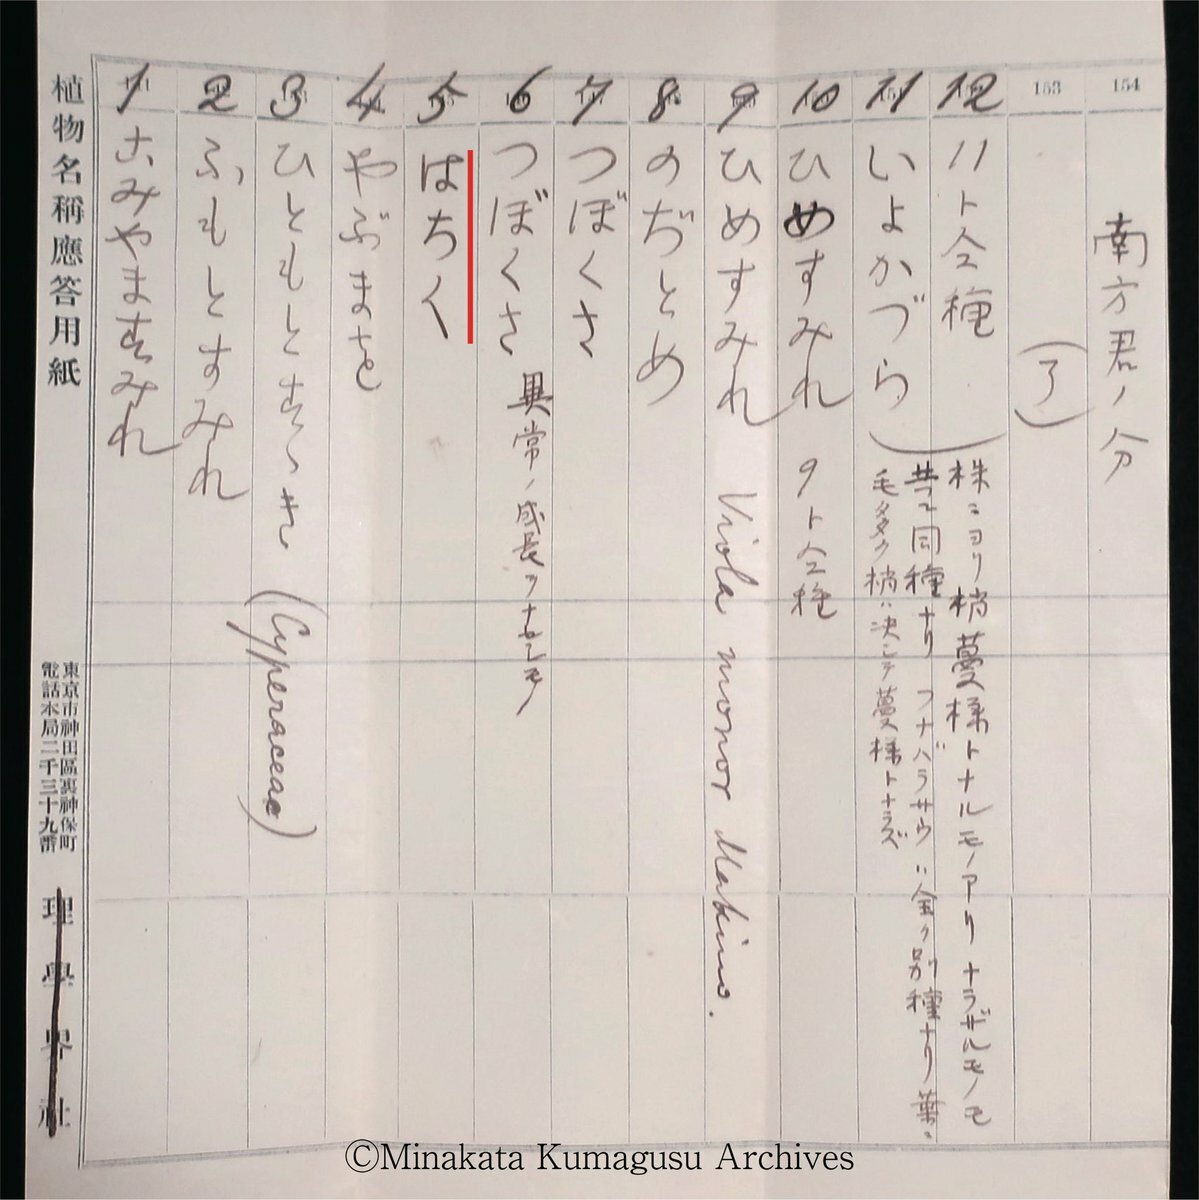 154
南方君ノ分
153
(了)
12
11ト仝種
11
いよかづら
株ニヨリ梢蔓様トナルモノアリナラザルモノモ
共ニ同種ナリ フナバラサウハ全ク別種ナリ葉ニ
毛多ク梢ハ決シテ蔓様トナラズ
10
ひめすみれ 9ト仝種
9
ひめすみれ Viola minor Makino.
8
のぢとめ
7
つぼくさ
6
つぼくさ 異常ノ成長ヲナセシモノ
5
はちく
4
やぶまを
3
ひともとすゝき (Cyperaceae)
2
ふもとすみれ
1
こみやますみれ
植物名稱應答用紙
東京市神田區裏神保町
電話本局二千三十九番
理學界社
©Minakata Kumagusu Archives